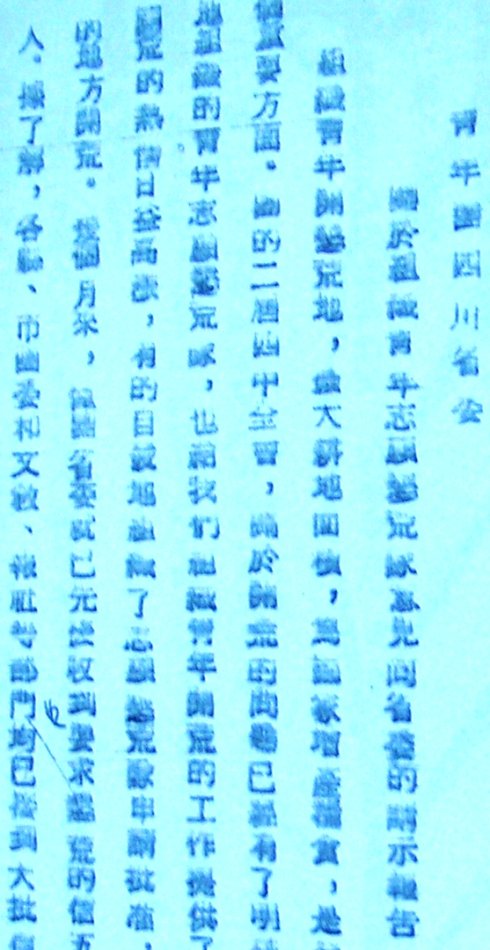 青年團四川省委
關於組織青年志願墾荒隊意見向省委的請示報告
組織青年開墾荒地，擴大耕地面積，爲國家增產糧食，是
要方面。團的二屆四中全會，關於開荒的問題已經有了明
地組織的青年志願墾荒隊，也給我們組織青年開荒的工作提供了
墾荒的熱情日益高漲，有的自發地組織了志願墾荒隊申請批准，
的地方開荒。幾個月來，團省委就已先後收到要求墾荒的信五
人。據了解，各縣、市團委和文教、報社等部門均已接到大批